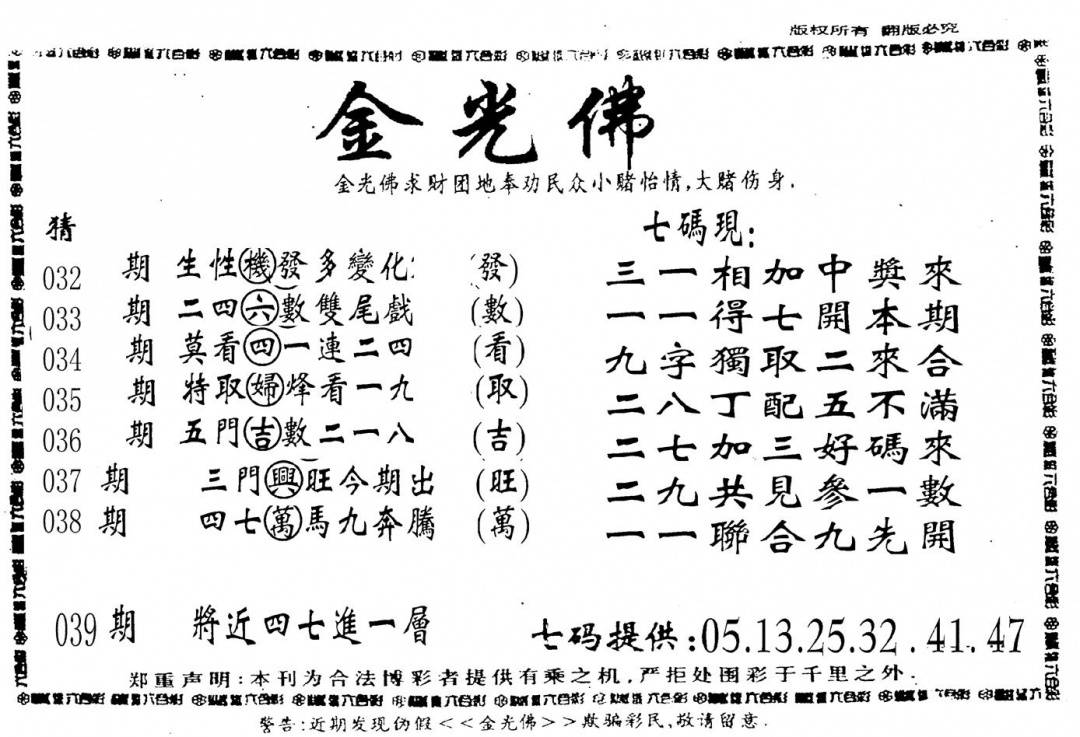 版权所有 翻版必究
金光佛
金光佛求财团地奉劝民众小赌怡情,大赌伤身.
猜 七碼現:
032 期 生性機發多變化 (發) 三一相加中獎來
033 期 二四六數雙尾戲 (數) 一一得七開本期
034 期 莫看四一連二四 (看) 九字獨取二來合
035 期 特取婦烽看一九 (取) 二八丁配五不滿
036 期 五門吉數二一八 (吉) 二七加三好碼來
037 期 三門興旺今期出 (旺) 二九共見參一數
038 期 四七萬馬九奔騰 (萬) 一一聯合九先開
039 期 將近四七進一層 七码提供:05.13.25.32.41.47
郑重声明:本刊为合法博彩者提供有乘之机,严拒处图彩于千里之外.
警告:近期发现伪假<<金光佛>>欺骗彩民,敬请留意.